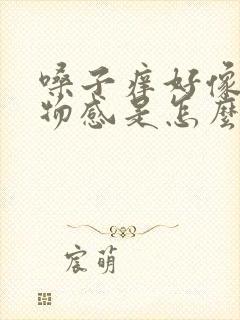 嗓子痒好像
物感是怎麼
宸萌